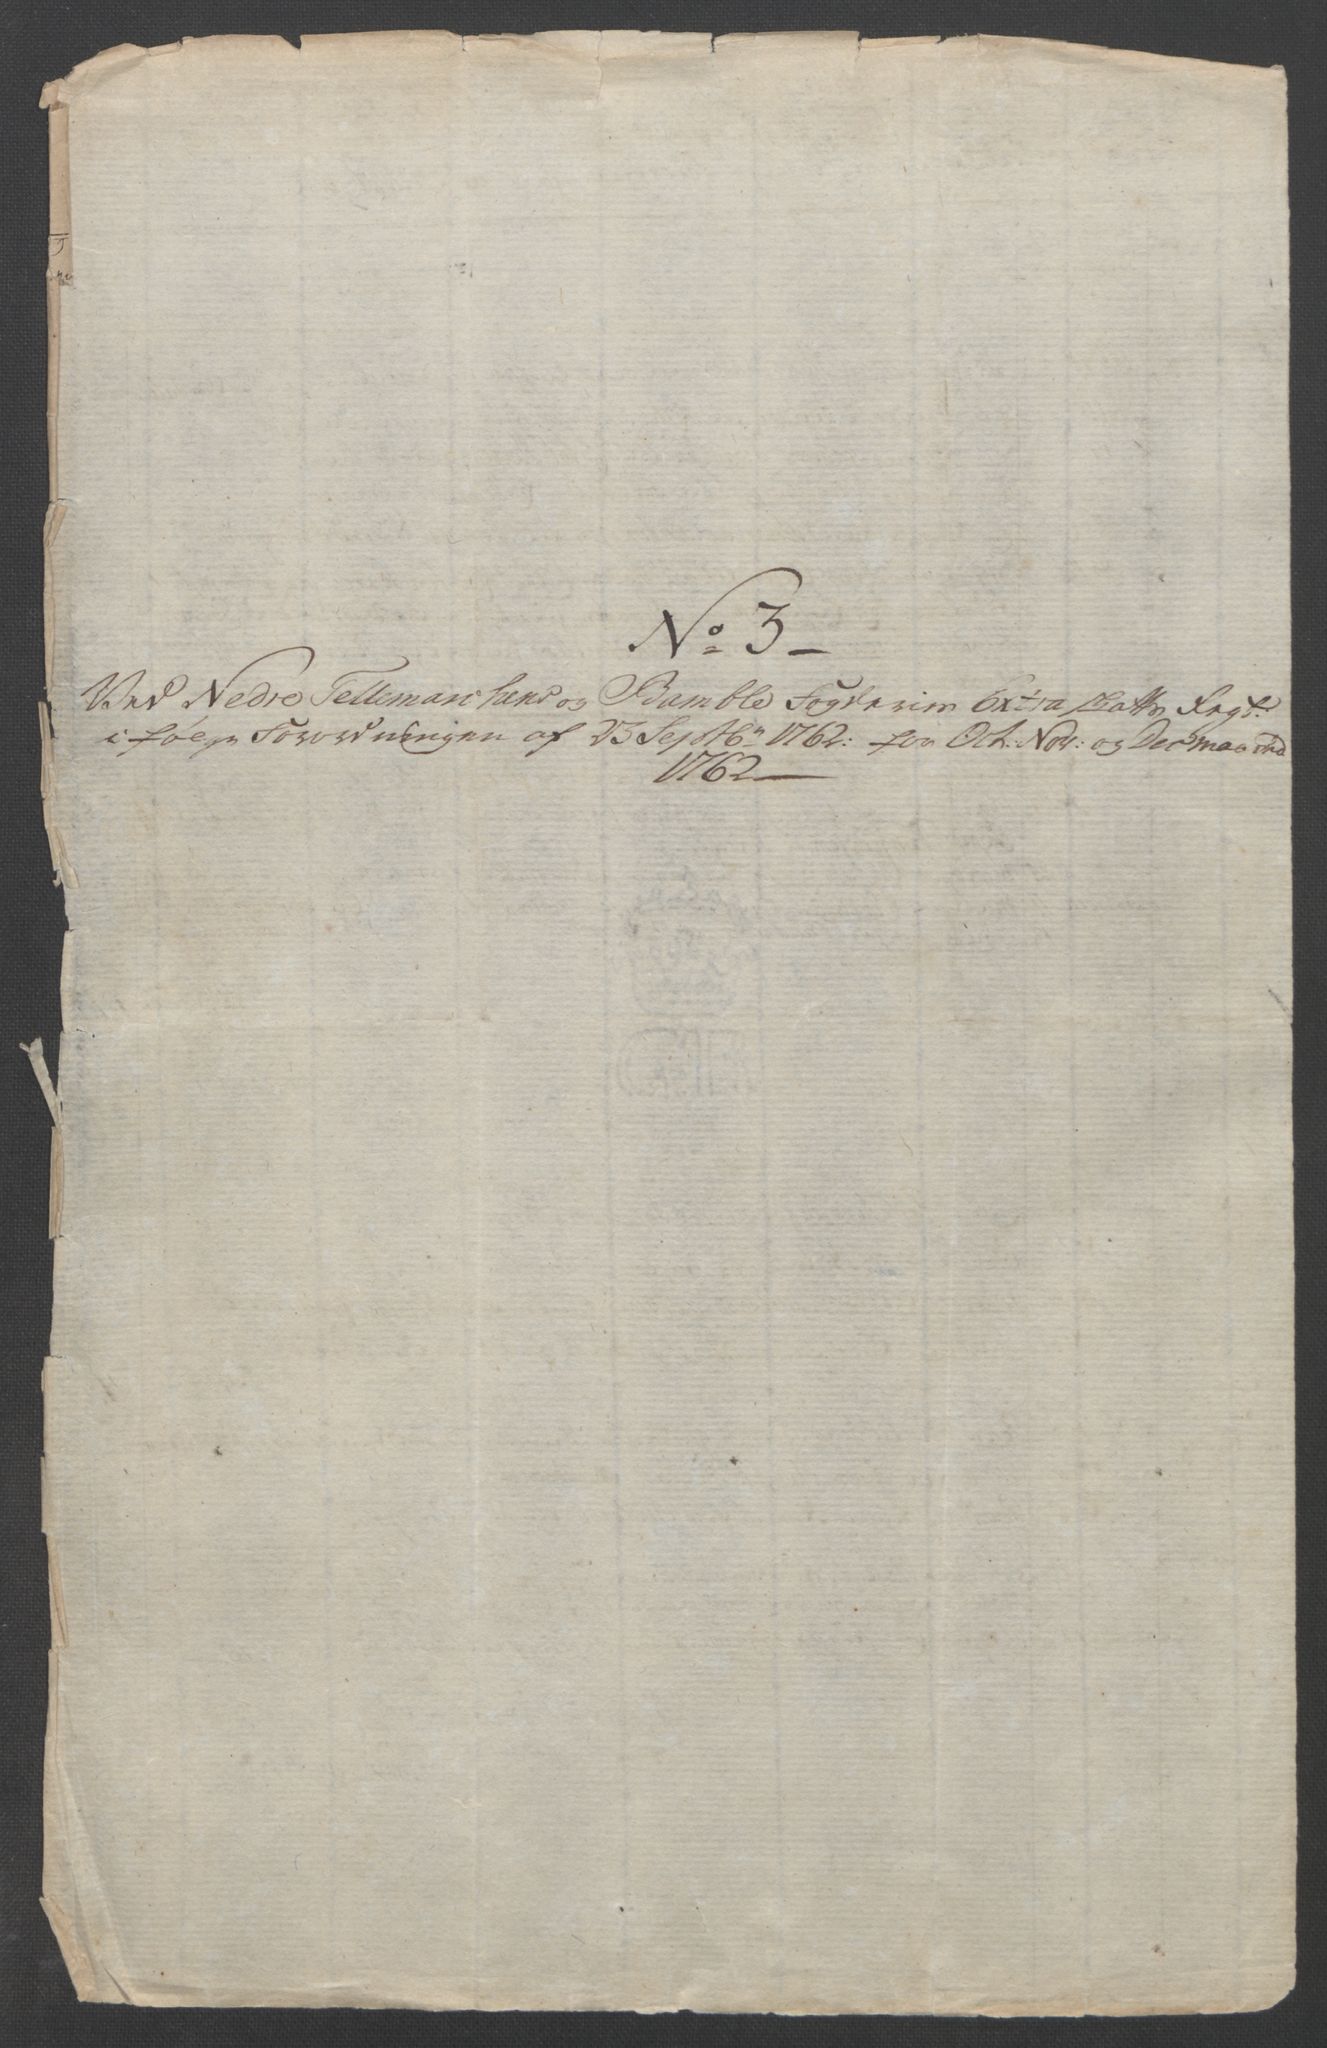 No 3
Ved Nedre Tellemarchens og Bamble Fogderier Extra skatte Regt:
i følge Forordningen af 23 Septbr 1762: for Oct: Nov: og Dec maaned
1762